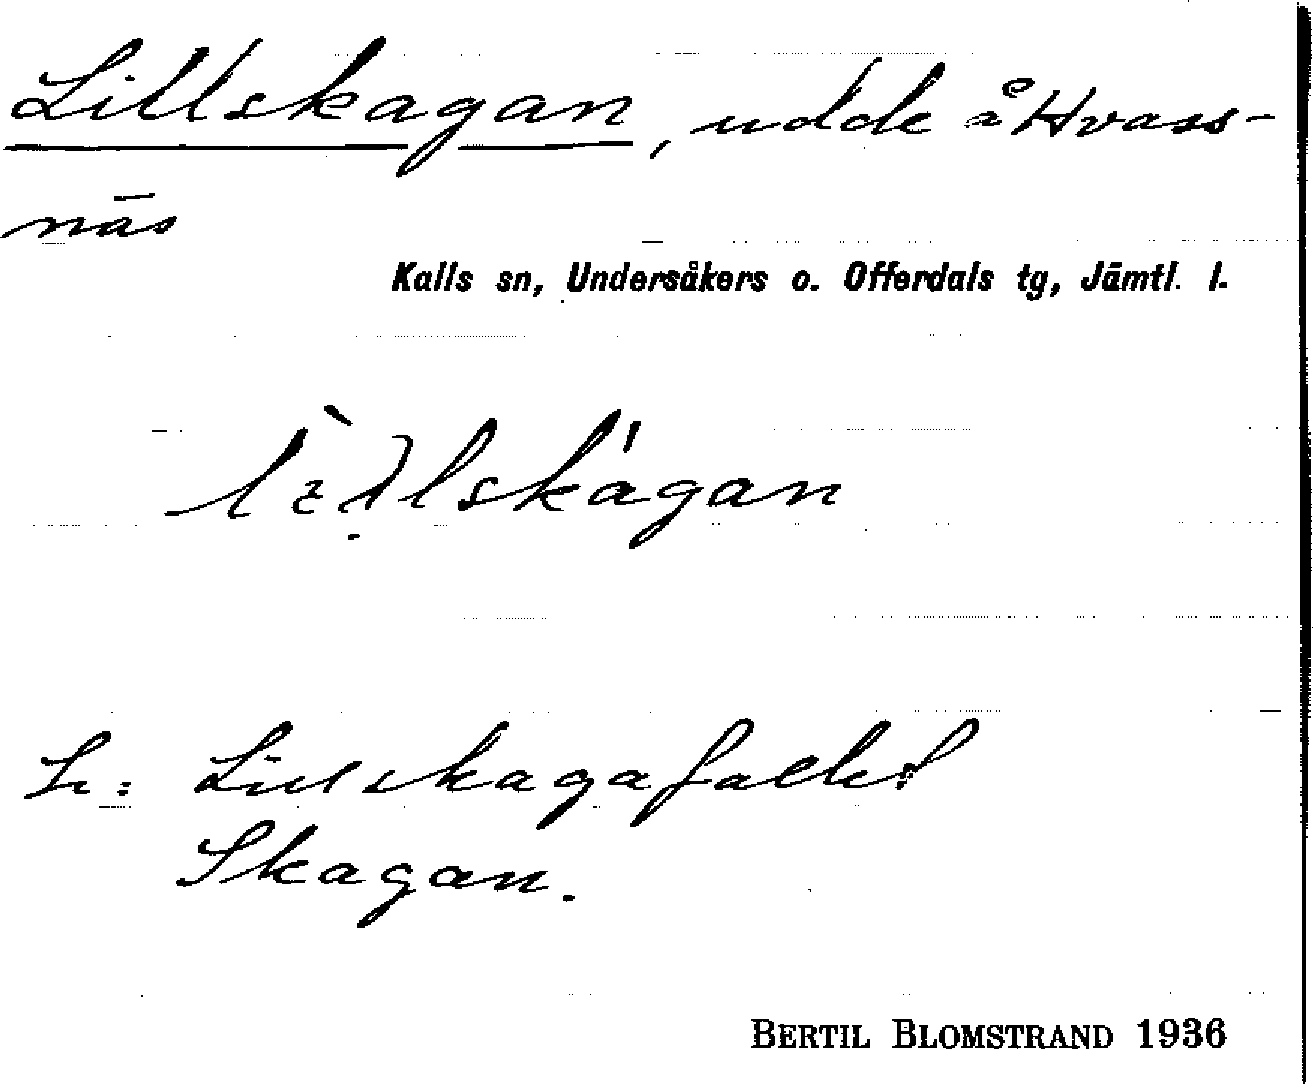 Lillskagan, udde å Hvass-
näs
Kalls sn, Undersåkers o. Offerdals tg, Jämtl. l.
L: Lillskagafallet
Skagan.
BERTIL BLOMSTRAND 1936